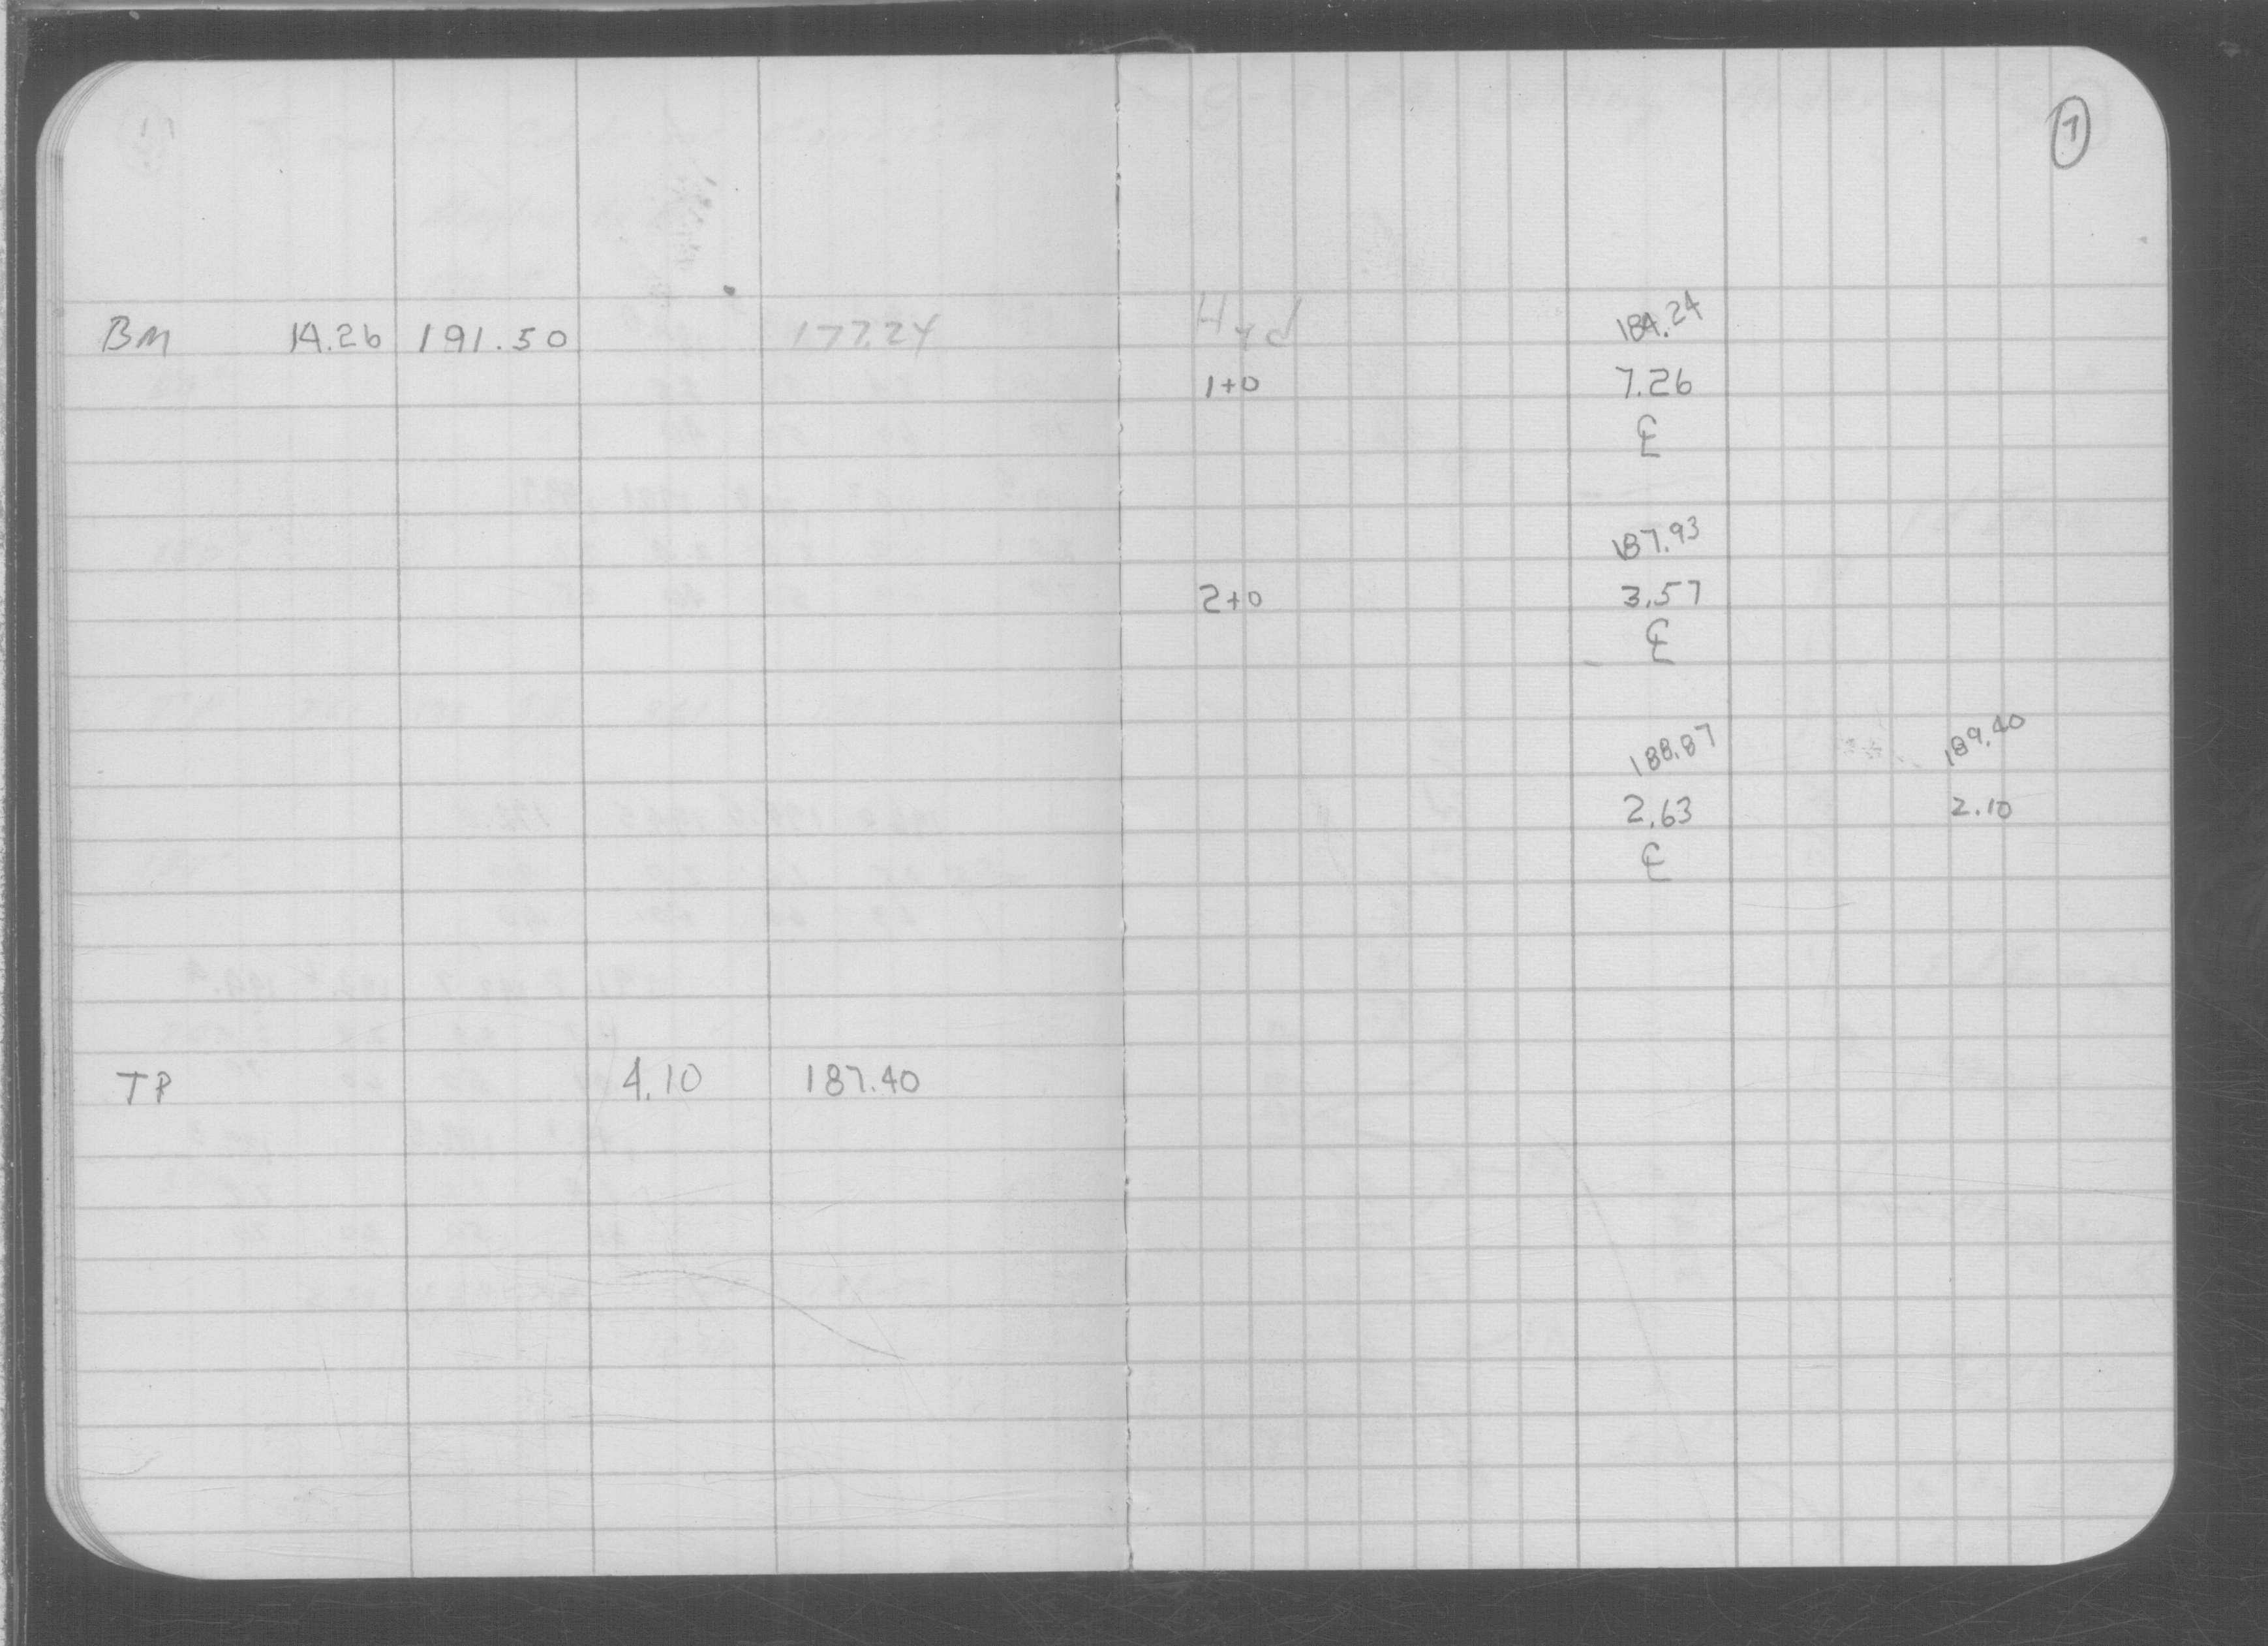 7
BM 14.26 191.50 177.24 Hyd 184.24
1+0 7.26
℄
187.93
2+0 3.57
℄
188.87 189.40
2.63 2.10
℄
TP 4.10 187.40